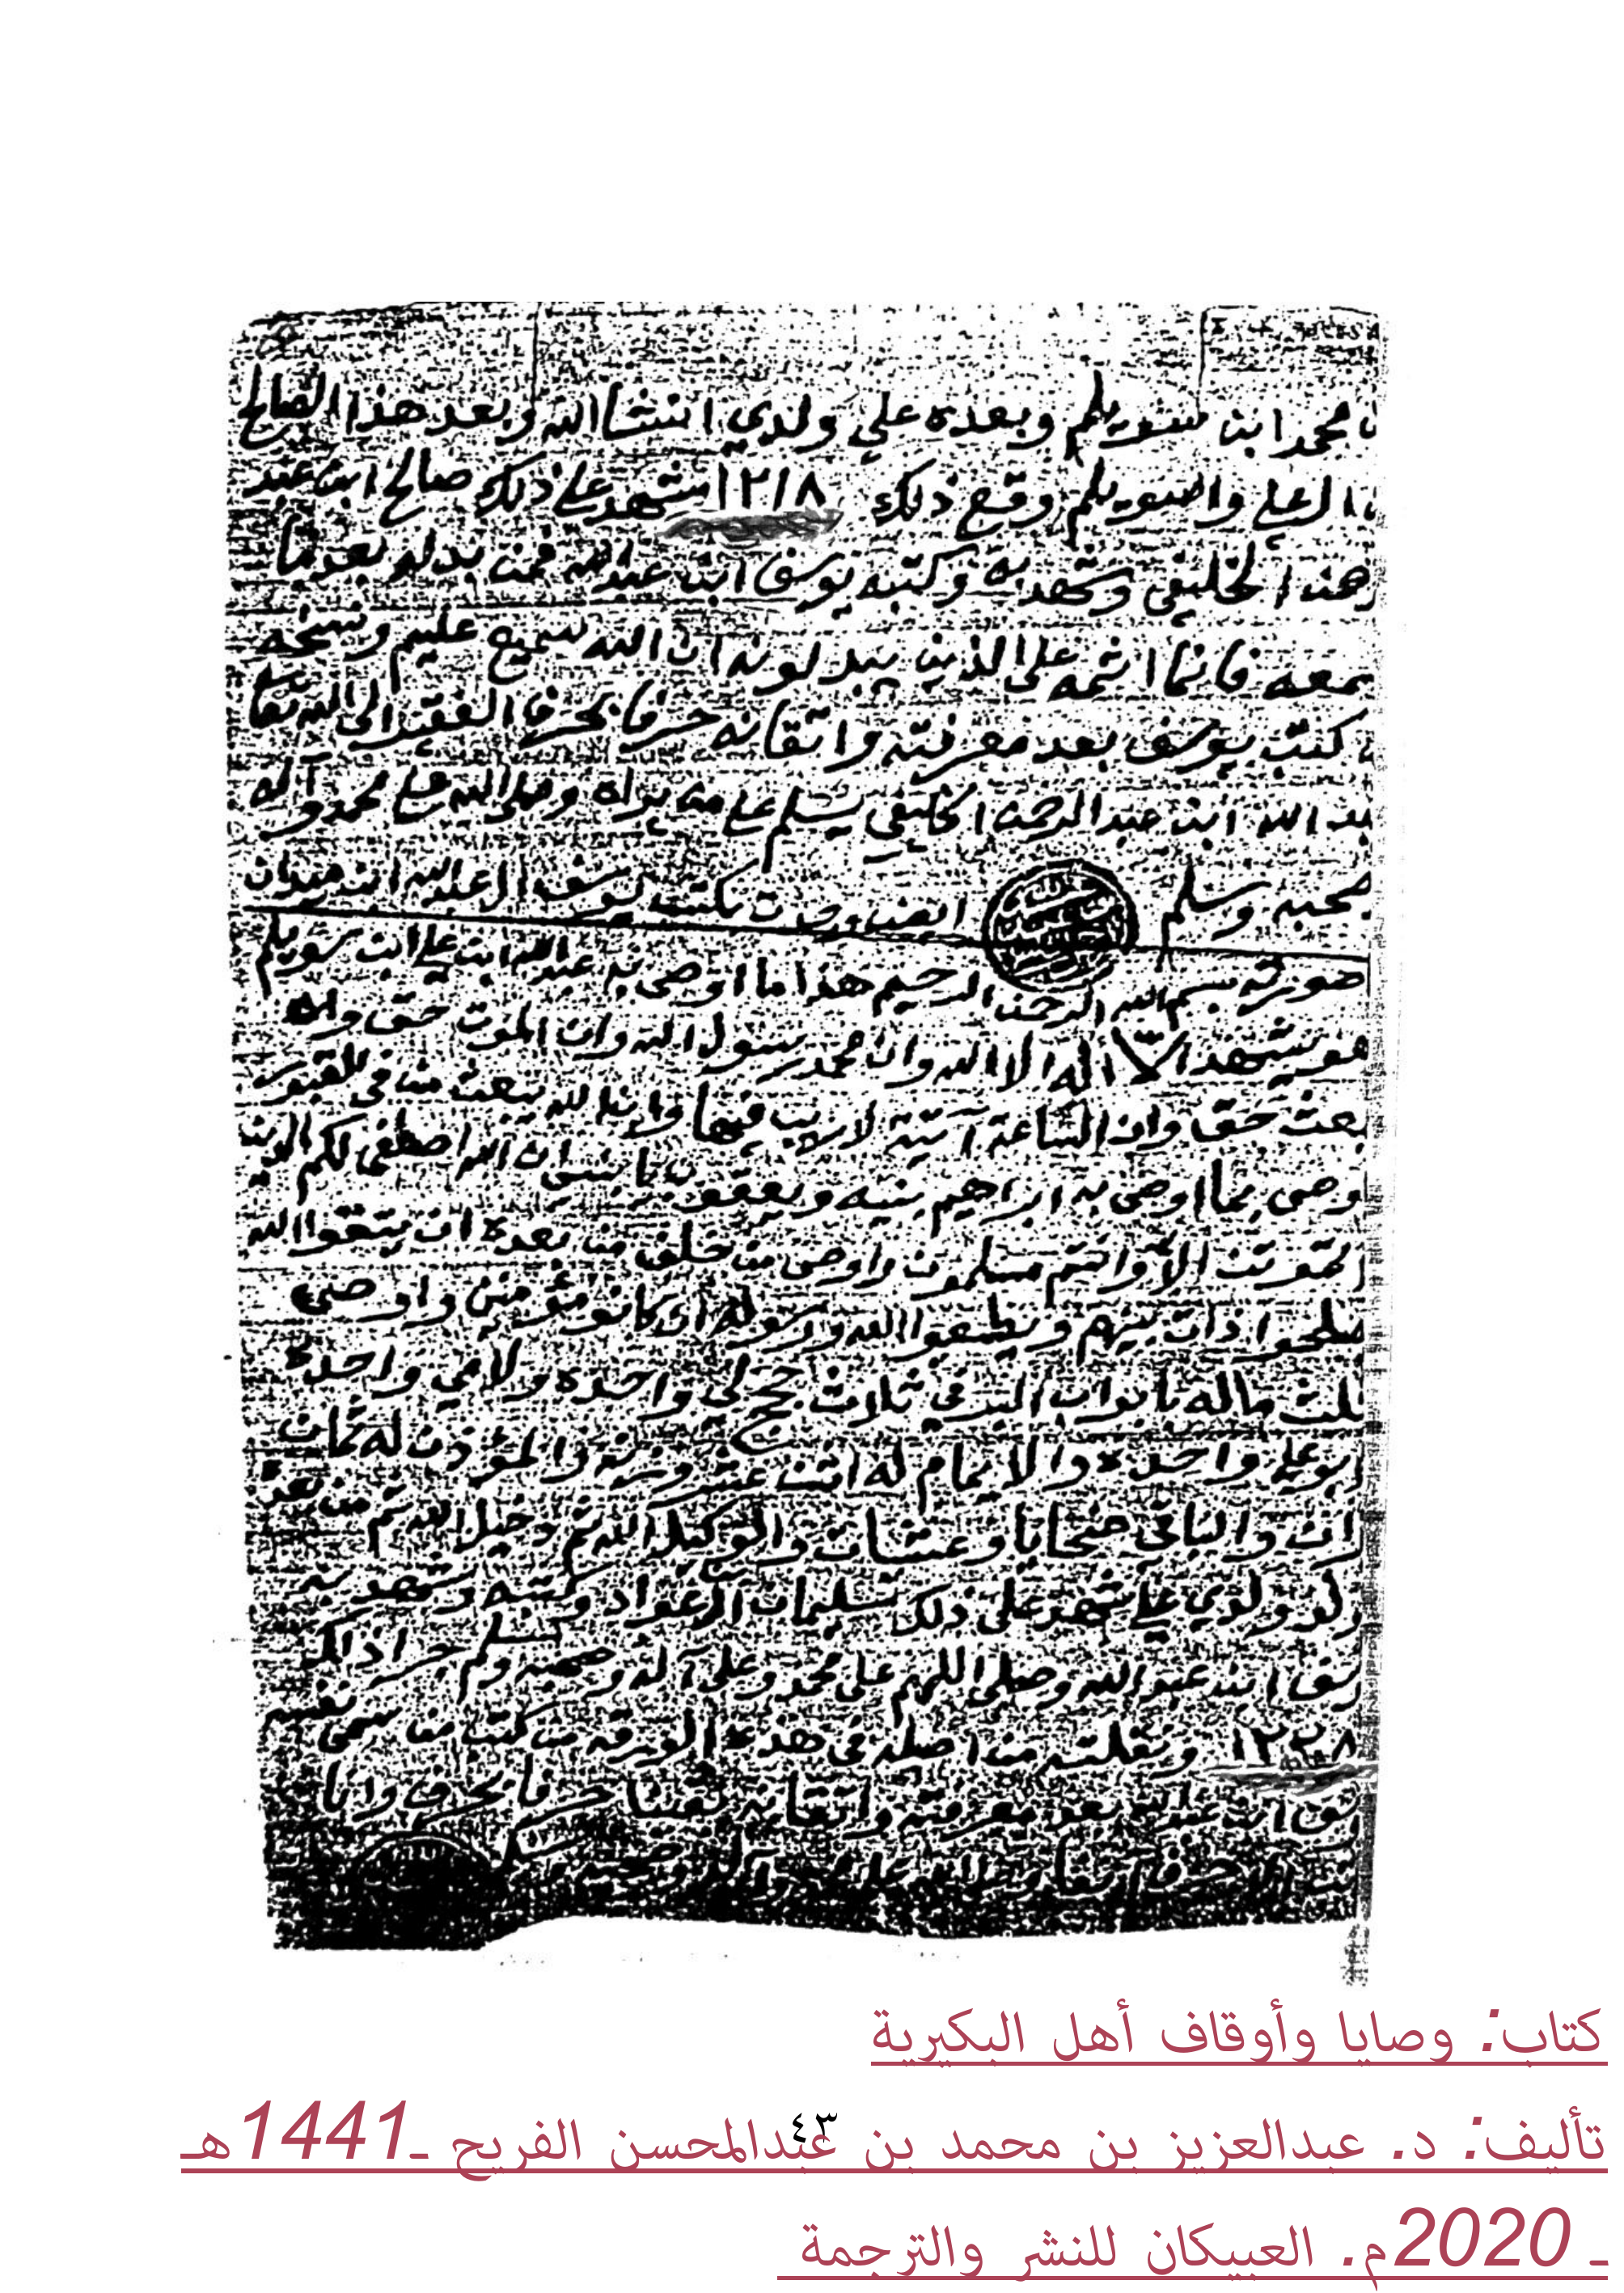 محمد ابن سويلم وبعده علي ولدي انشا الله وبعد هذا الصالح
العلي والسويلم وقع ذلك ١٢١٨ شهد علي ذلك صالح ابن عبد
الخليفي وشهد به وكتبه يوسف ابن عبد الله فمن بدله بعد ما
سمعه فانما اثمه على الذين يبدلونه ان الله سميع عليم ونسخه
كتب يوسف بعد معرفته واتقانه حرفا بحرف الفقير الى الله تعا
الله ابن عبد الرحمن الخليفي يسلم علي من يراه وصلى الله علي محمد وآله
وسلم ايضا وصات بكتب يوسف العبدالله ابن
صورته بسم الله الرحمن الرحيم هذا ما اوصى به عبد الله ابن علي ابن سويلم
هو يشهد الا اله الا الله وان محمد رسول الله وان الموت حق وان
بعث حق وان الساعة آتية لا ريب فيها وان الله يبعث من في القبور
وصى بما اوصى به ابراهيم بنيه ويعقوب يا بني ان الله اصطفى لكم الدين
تموتن الا وانتم مسلمون واوصى من خلف من بعده ان يتقوا الله
صلحوا ذات بينهم ويطيعوا الله ورسوله ان كانو مؤمنين واوصى
ثلث ماله بابواب البر في ثلاث حجج لي واحده ولامي واحدة
ابوي علي واحده والامام له اثنت عشر وزنة والمؤذن له ثمان
والباقي ضحايا وعشات والوكيل الله ثم دخيل الله ثم من بعد
ولدي علي شهد على ذلك سليمان العواد وكتبه وشهد به
ابن عبد الله وصلى اللهم على محمد وعلى آله وصحبه وسلم
١٢٢٨ ونقلته من اصله في هذه الورقه من كتب من سمى نفسه
ابن عبدالله بعد معرفته واتقانه يقينا حرفا بحرف وانا
كتاب: وصايا وأوقاف أهل البكيرية
تأليف: د. عبدالعزيز بن محمد بن عبدالمحسن الفريح ـ1441هـ
٤٣
ـ 2020م. العبيكان للنشر والترجمة